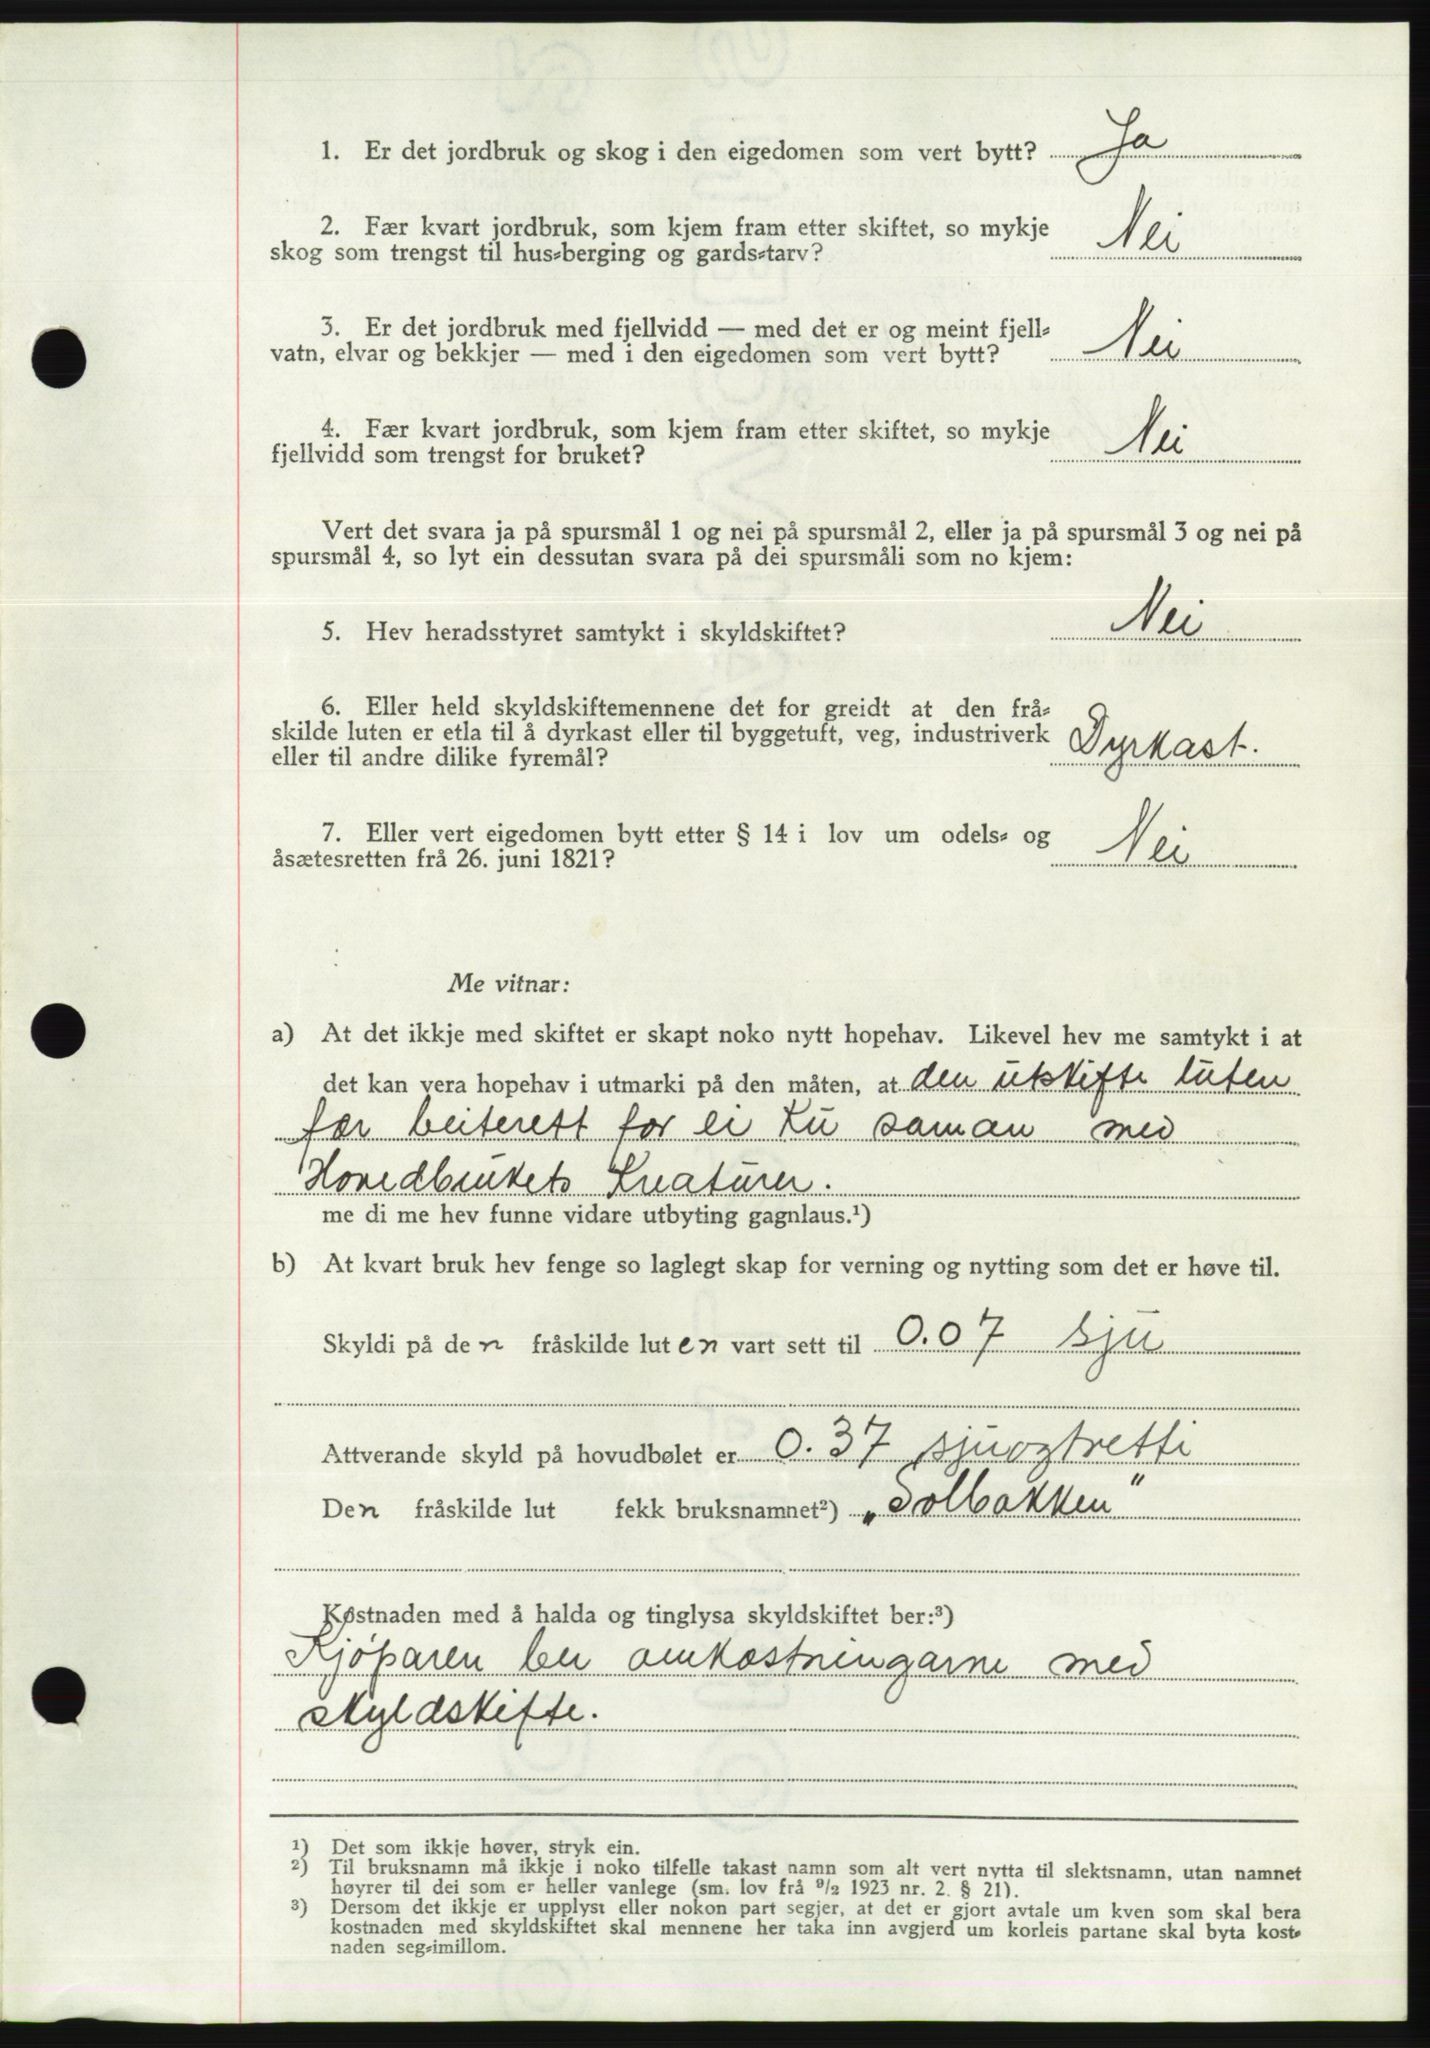 1. Er det jordbruk og skog i den eigedomen som vert bytt? Ja
2. Fær kvart jordbruk, som kjem fram etter skiftet, so mykje
skog som trengst til hus-berging og gards-tarv? Nei
3. Er det jordbruk med fjellvidd — med det er og meint fjell-
vatn, elvar og bekkjer — med i den eigedomen som vert bytt? Nei
4. Fær kvart jordbruk, som kjem fram etter skiftet, so mykje
fjellvidd som trengst for bruket? Nei
Vert det svara ja på spursmål 1 og nei på spursmål 2, eller ja på spursmål 3 og nei på
spursmål 4, so lyt ein dessutan svara på dei spursmåli som no kjem:
5. Hev heradsstyret samtykt i skyldskiftet? Nei
6. Eller held skyldskiftemennene det for greidt at den frå-
skilde luten er etla til å dyrkast eller til byggetuft, veg, industriverk Dyrkast.
eller til andre dilike fyremål?
7. Eller vert eigedomen bytt etter § 14 i lov um odels- og
åsætesretten frå 26. juni 1821? Nei
Me vitnar:
a) At det ikkje med skiftet er skapt noko nytt hopehav. Likevel hev me samtykt i at
det kan vera hopehav i utmarki på den måten, at den utskifte luten
fær beiterett for ei Ku saman med
Hovedbrukets Kreaturer.
me di me hev funne vidare utbyting gagnlaus.¹)
b) At kvart bruk hev fenge so laglegt skap for verning og nytting som det er høve til.
Skyldi på den fråskilde luten vart sett til 0.07 sju
Attverande skyld på hovudbølet er 0.37 sjuogtretti
Den fråskilde lut fekk bruksnamnet²) „Solbakken"
Kostnaden med å halda og tinglysa skyldskiftet ber:³)
Kjøparen ber omkostningarne med
skyldskifte.
¹) Det som ikkje høver, stryk ein.
²) Til bruksnamn må ikkje i noko tilfelle takast namn som alt vert nytta til slektsnamn, utan namnet
høyrer til dei som er heller vanlege (sm. lov frå 9/2 1923 nr. 2. § 21).
³) Dersom det ikkje er upplyst eller nokon part segjer, at det er gjort avtale um kven som skal bera
kostnaden med skyldskiftet skal mennene her taka inn avgjerd um korleis partane skal byta kost-
naden seg-imillom.